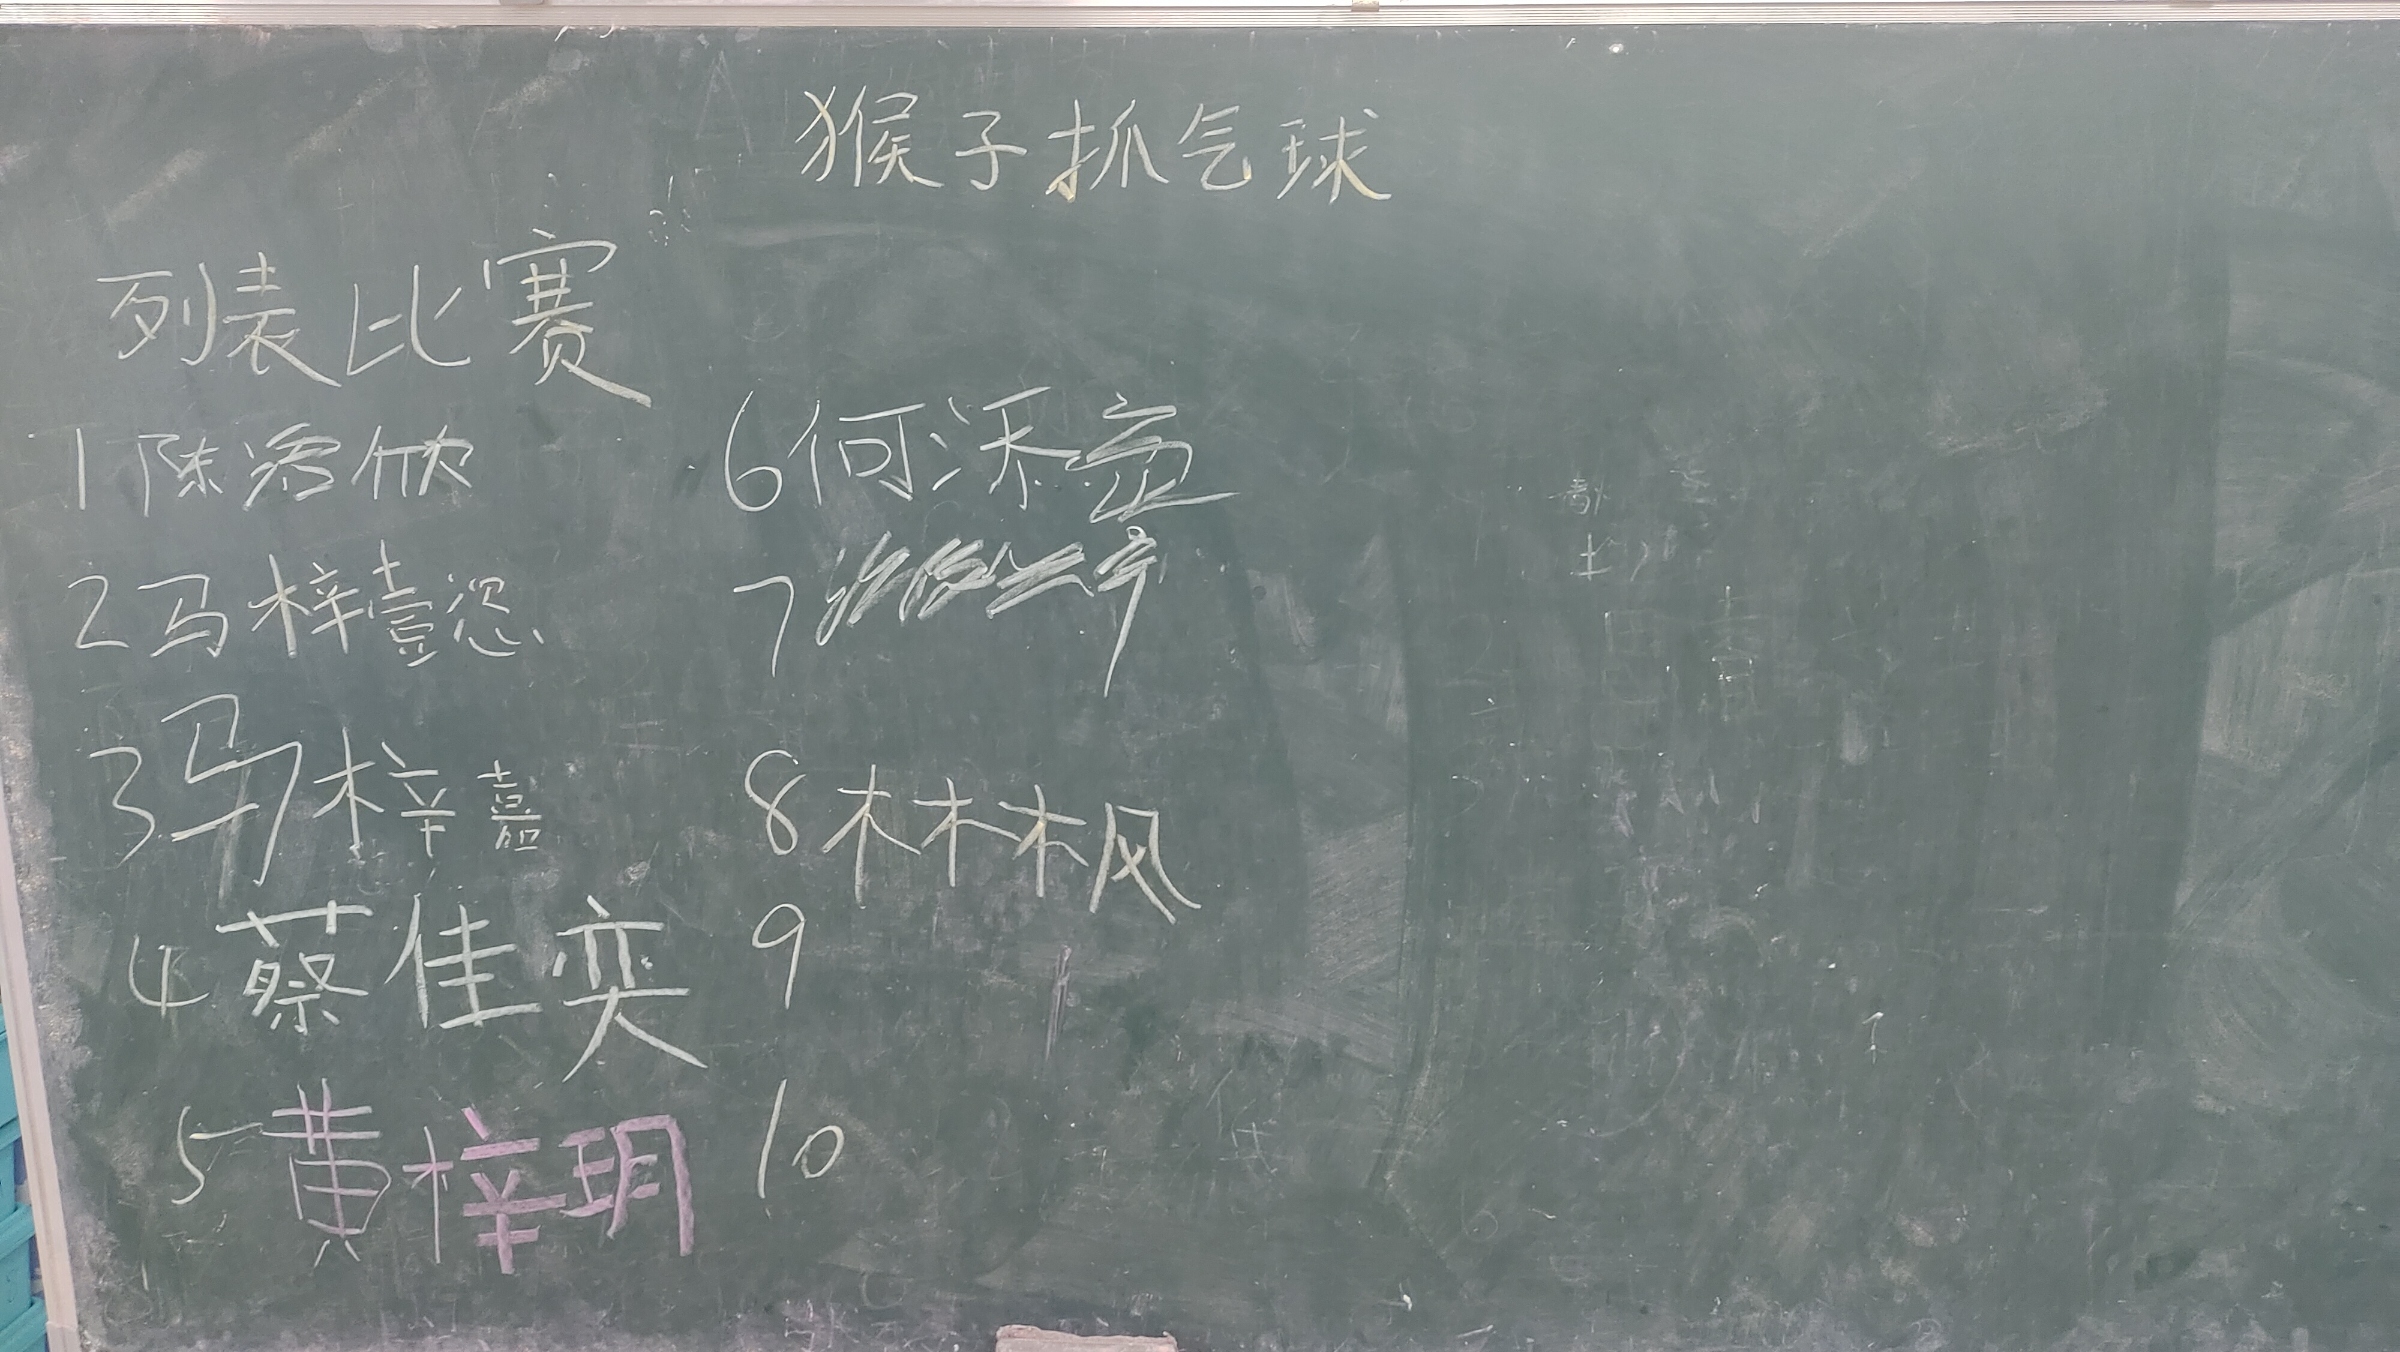 猴子抓气球
列表比赛
1 陈洛欣
2 马梓壹恣
3 马梓嘉
4 蔡佳奕
5 黄梓玥
6 何沃
7
8 林木枫
9
10